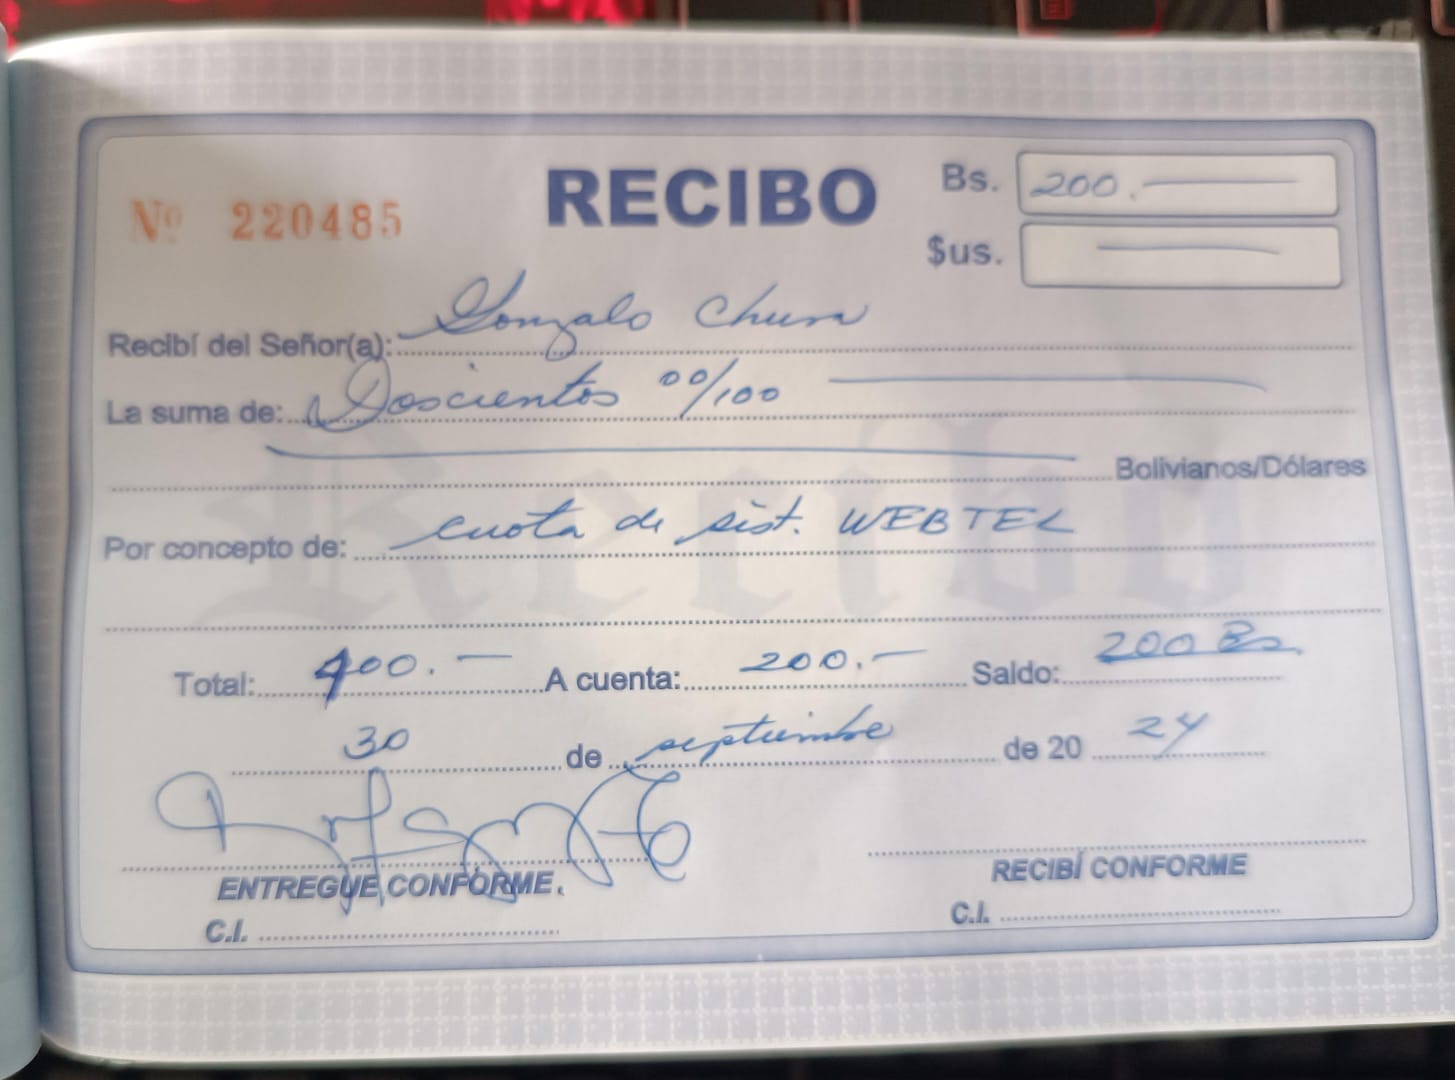 RECIBO
Bs. 200.—
Nº 220485
$us. —
Recibí del Señor(a): Gonzalo Chura
La suma de: Doscientos 00/100 —
— Bolivianos/Dólares
Por concepto de: cuota de sist. WEBTEL
Total: 400.— A cuenta: 200.— Saldo: 200 Bs.
30 de septiembre de 20 24
ENTREGUE CONFORME. RECIBÍ CONFORME
C.I. C.I.
Recibo